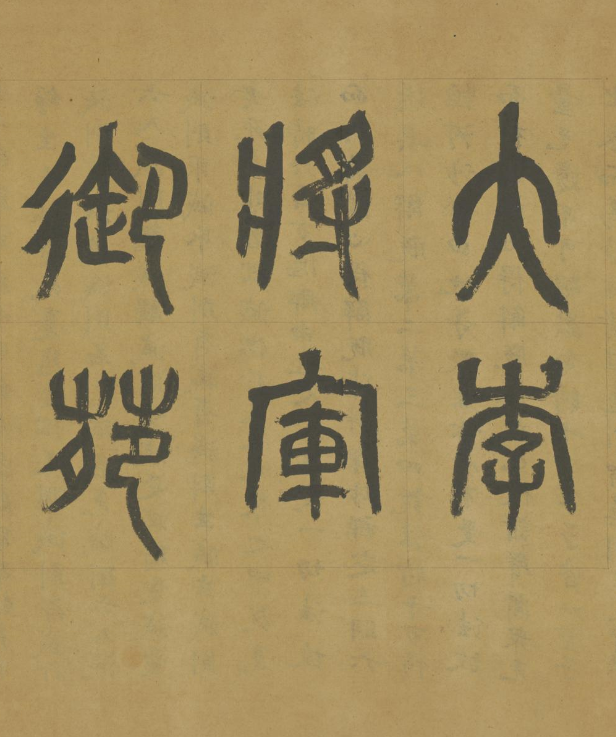 大李
將軍
御苑